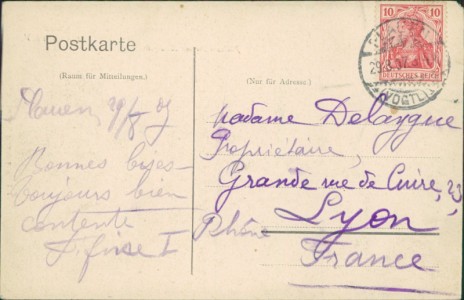 Postkarte
(Raum für Mitteilungen.)
(Nur für Adresse.)
10 10
DEUTSCHES REICH
(VOGTL.)
Plauen, 29/8 07
Bonnes
toujours bien
contente
Madame Delaygue
Propriétaire,
Grande rue de Cuire, 23,
Lyon,
Rhône
France